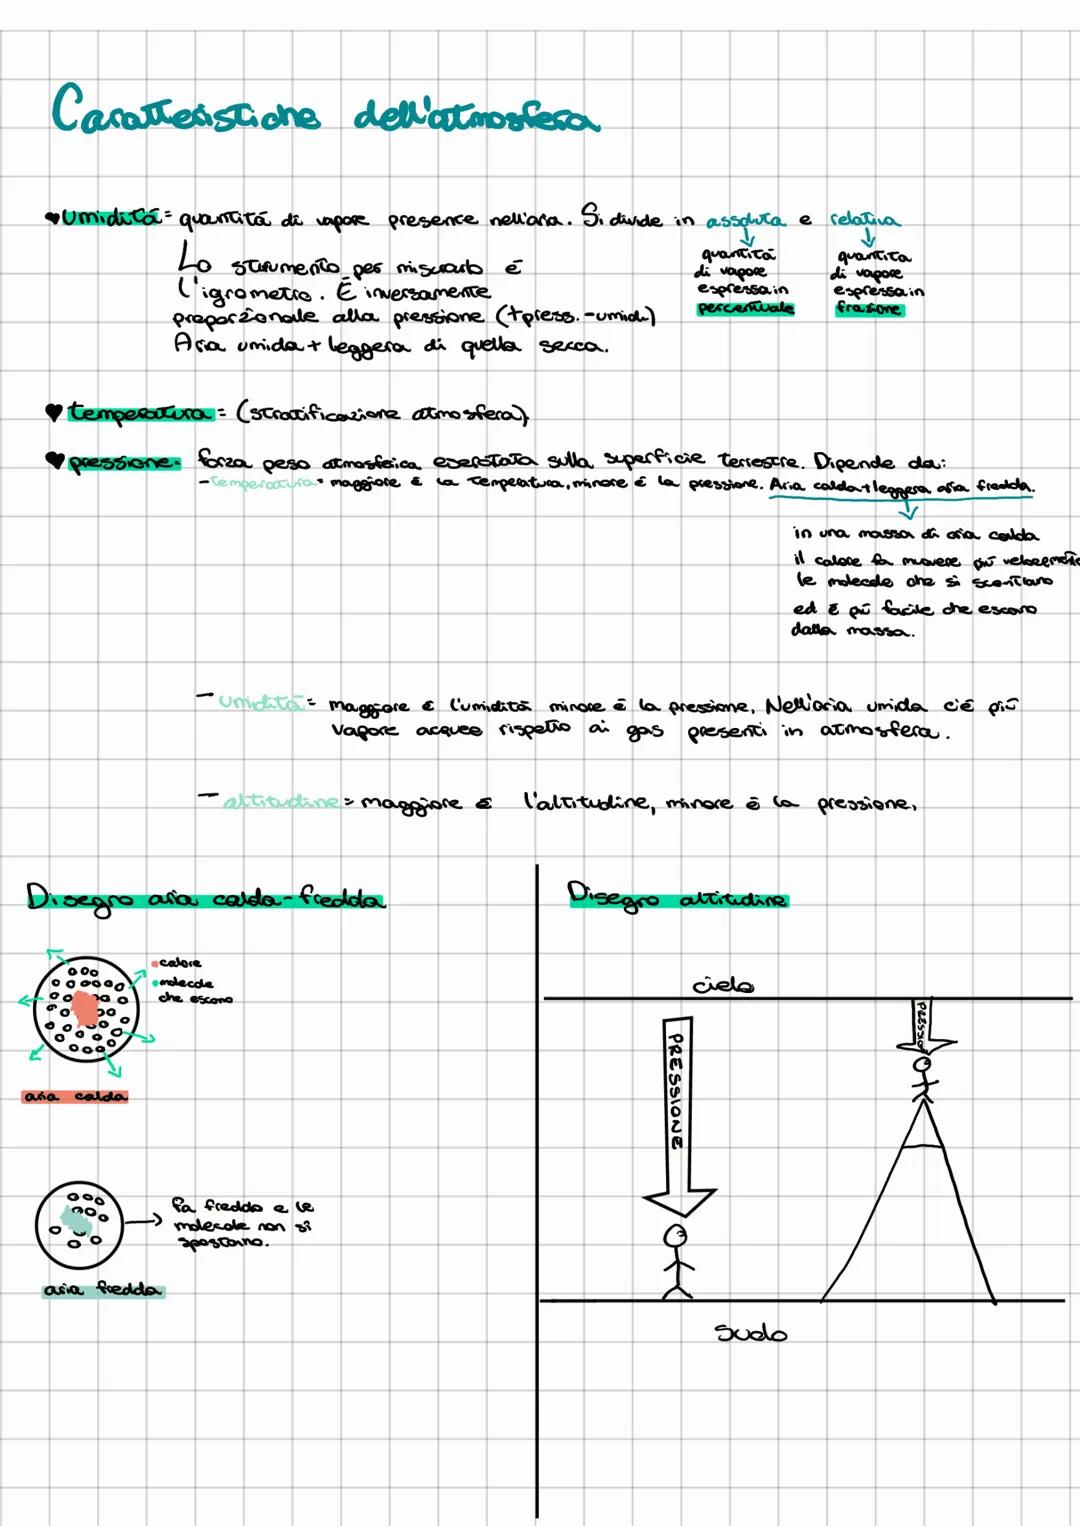 Caratteristiche dell'atmosfera
♥ umiditá = quantitá di vapore presence nell'aria. Si divide in assoluta e relativa
quantitá
di vapore
espressa in
percentuale
quantita
di vapore
espressa in
frazione
Lo strumento per misurarlo é
l'igrometro. É inversamente
proporzionale alla pressione (+press. -umid.)
Aria umida + leggera di quella secca.
♥ temperatura = (stratificazione atmosfera)
♥ pressione= forza peso atmosferica esercitata sulla superficie terrestre. Dipende da:
-temperatura= maggiore é la temperatura, minore é la pressione. Aria calda + leggera aria fredda.
in una massa di aria calda
il calore fa muovere piú velocemente
le molecole che si scontrano
ed é piú facile che escano
dalla massa.
- umiditá= maggiore é l'umiditá minore é la pressione, Nell'aria umida c'é piú
vapore acqueo rispetto ai gas presenti in atmosfera.
- altitudine= maggiore é l'altitudine, minore é la pressione,
Disegno aria calda-fredda
calore
molecole
che escono
aria calda
fa freddo e le
molecole non si
spostano.
aria fredda
Disegno altitudine
cielo
PRESSIONE
PRESSION
suolo